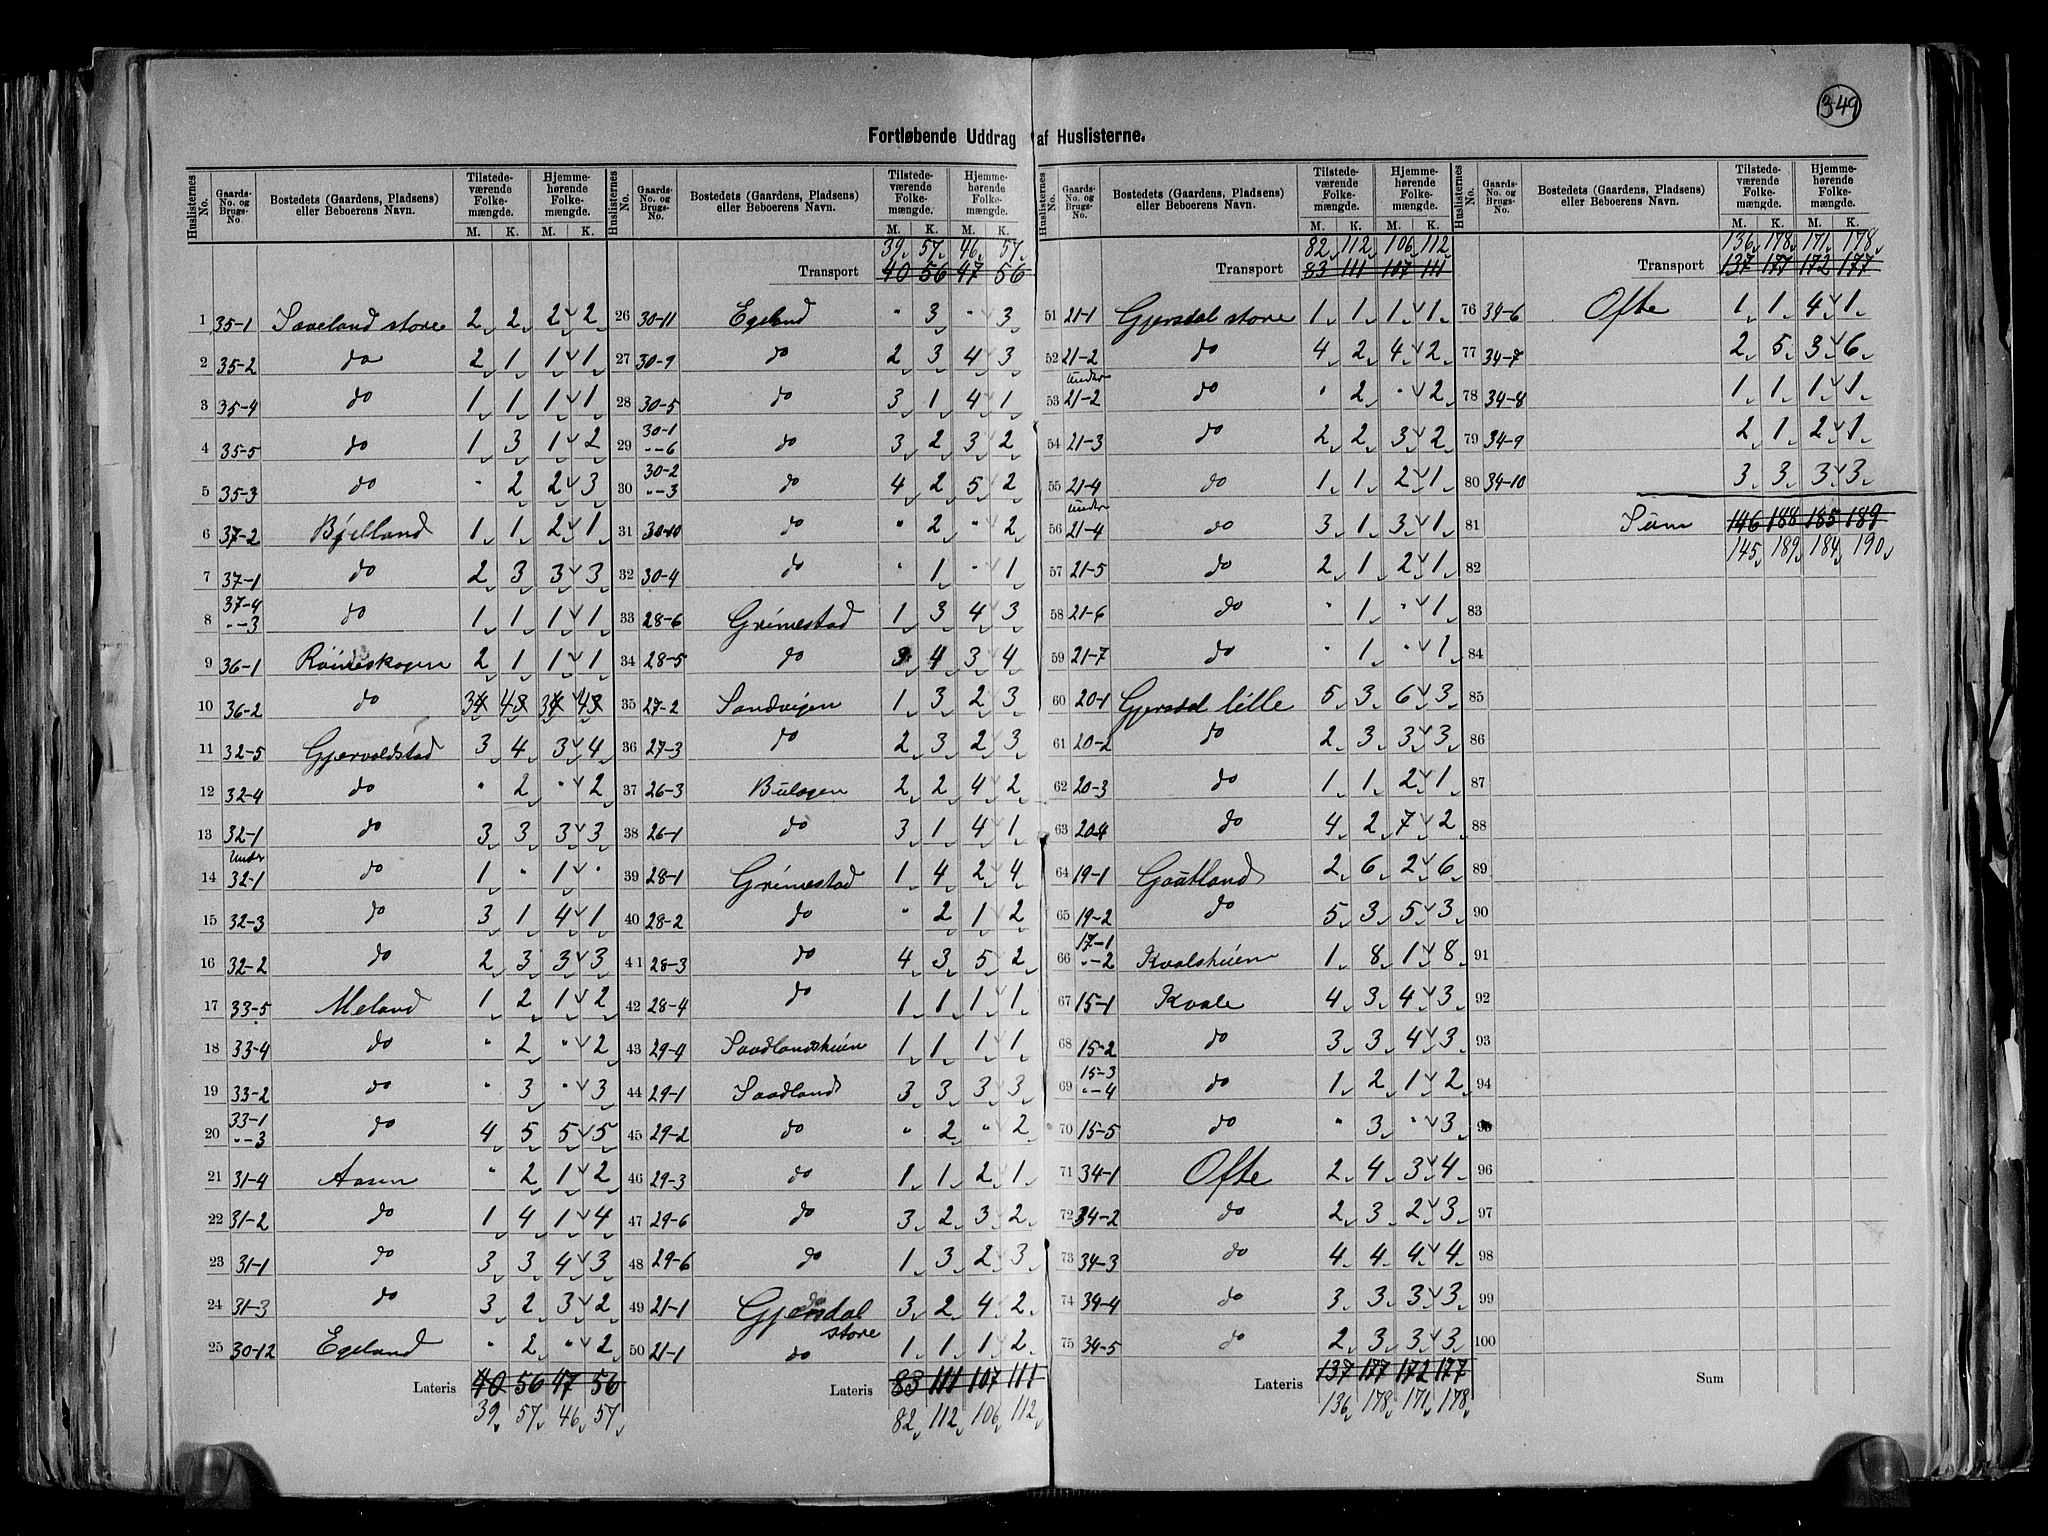 349
Fortløbende Uddrag af Huslisterne.
Huslisternes No. | Gaards-No. og Brugs-No. | Bostedets (Gaardens, Pladsens) eller Beboerens Navn. | Tilstedeværende Folkemængde. M. K. | Hjemmehørende Folkemængde. M. K.
1 35-1 Saaeland store 2 2 2 2
2 35-2 do 2 1 1 1
3 35-4 do 1 1 1 1
4 35-5 do 1 3 1 2
5 35-3 do " 2 2 3
6 37-2 Bøelland 1 1 2 1
7 37-1 do 2 3 3 3
8 37-4 "-3 do 1 1 1 1
9 36-1 Röineskogen 2 1 1 1
10 36-2 do 3 4 3 4
11 32-5 Gjervoldstad 3 4 3 4
12 32-4 do " 2 " 2
13 32-1 do 3 3 3 3
14 Under 32-1 do 1 " 1 "
15 32-3 do 3 1 4 1
16 32-2 do 2 3 3 3
17 33-5 Meland 1 2 1 2
18 33-4 do " 2 " 2
19 33-2 do " 3 " 3
20 33-1 "-3 do 4 5 5 5
21 31-4 Aasen " 2 1 2
22 31-2 do 1 4 1 4
23 31-1 do 3 3 4 3
24 31-3 do 3 2 3 2
25 30-12 Egeland " 2 " 2
Lateris 40 56 47 56
39 57 46 57
Huslisternes No. | Gaards-No. og Brugs-No. | Bostedets (Gaardens, Pladsens) eller Beboerens Navn. | Tilstedeværende Folkemængde. M. K. | Hjemmehørende Folkemængde. M. K.
39 57 46 57
Transport 40 56 47 56
26 30-11 Egeland " 3 " 3
27 30-9 do 2 3 4 3
28 30-5 do 3 1 4 1
29 30-1 "-6 do 3 2 3 2
30 30-2 "-3 do 4 2 5 2
31 30-10 do " 2 " 2
32 30-4 do " 1 " 1
33 28-6 Grimestad 1 3 4 3
34 28-5 do 3 4 3 4
35 27-2 Sandvigen 1 3 2 3
36 27-3 do 2 3 2 3
37 26-3 Bulagen 2 2 4 2
38 26-1 do 3 1 4 1
39 28-1 Grimestad 1 4 2 4
40 28-2 do " 2 1 2
41 28-3 do 4 3 5 2
42 28-4 do 1 1 1 1
43 29-4 Saadlandsheien 1 1 1 1
44 29-1 Saadland 3 3 3 3
45 29-2 do " 2 " 2
46 29-3 do 1 1 2 1
47 29-6 do 3 2 3 2
48 29-6 do 1 3 2 3
49 21-1 Gjersdal store 3 2 4 2
50 21-1 do 1 1 1 2
Lateris 83 111 107 111
82 112 106 112
Huslisternes No. | Gaards-No. og Brugs-No. | Bostedets (Gaardens, Pladsens) eller Beboerens Navn. | Tilstedeværende Folkemængde. M. K. | Hjemmehørende Folkemængde. M. K.
82 112 106 112
Transport 83 111 107 111
51 21-1 Gjersdal store 1 1 1 1
52 21-2 do 4 2 4 2
53 Under 21-2 do " 2 " 2
54 21-3 do 2 2 3 2
55 21-4 do 1 1 2 1
56 Under 21-4 do 3 1 3 1
57 21-5 do 2 1 2 1
58 21-6 do " 1 " 1
59 21-7 do " 1 " 1
60 20-1 Gjersdal lille 5 3 6 3
61 20-2 do 2 3 3 3
62 20-3 do 1 1 2 1
63 20-4 do 4 2 7 2
64 19-1 Gautland 2 6 2 6
65 19-2 do 5 3 5 3
66 17-1 "-2 Kvalsheien 1 8 1 8
67 15-1 Kvale 4 3 4 3
68 15-2 do 3 3 4 3
69 15-3 "-4 do 1 2 1 2
70 15-5 do " 3 " 3
71 34-1 Ofte 2 4 3 4
72 34-2 do 2 3 2 3
73 34-3 do 4 4 4 4
74 34-4 do 3 3 3 3
75 34-5 do 2 3 3 3
Lateris 137 177 172 177
136 178 171 178
Huslisternes No. | Gaards-No. og Brugs-No. | Bostedets (Gaardens, Pladsens) eller Beboerens Navn. | Tilstedeværende Folkemængde. M. K. | Hjemmehørende Folkemængde. M. K.
136 178 171 178
Transport 137 177 172 177
76 34-6 Ofte 1 1 4 1
77 34-7 2 5 3 6
78 34-8 1 1 1 1
79 34-9 2 1 2 1
80 34-10 3 3 3 3
81 Sum 146 188 185 189
145 189 184 190
82
83
84
85
86
87
88
89
90
91
92
93
94
95
96
97
98
99
100
Sum